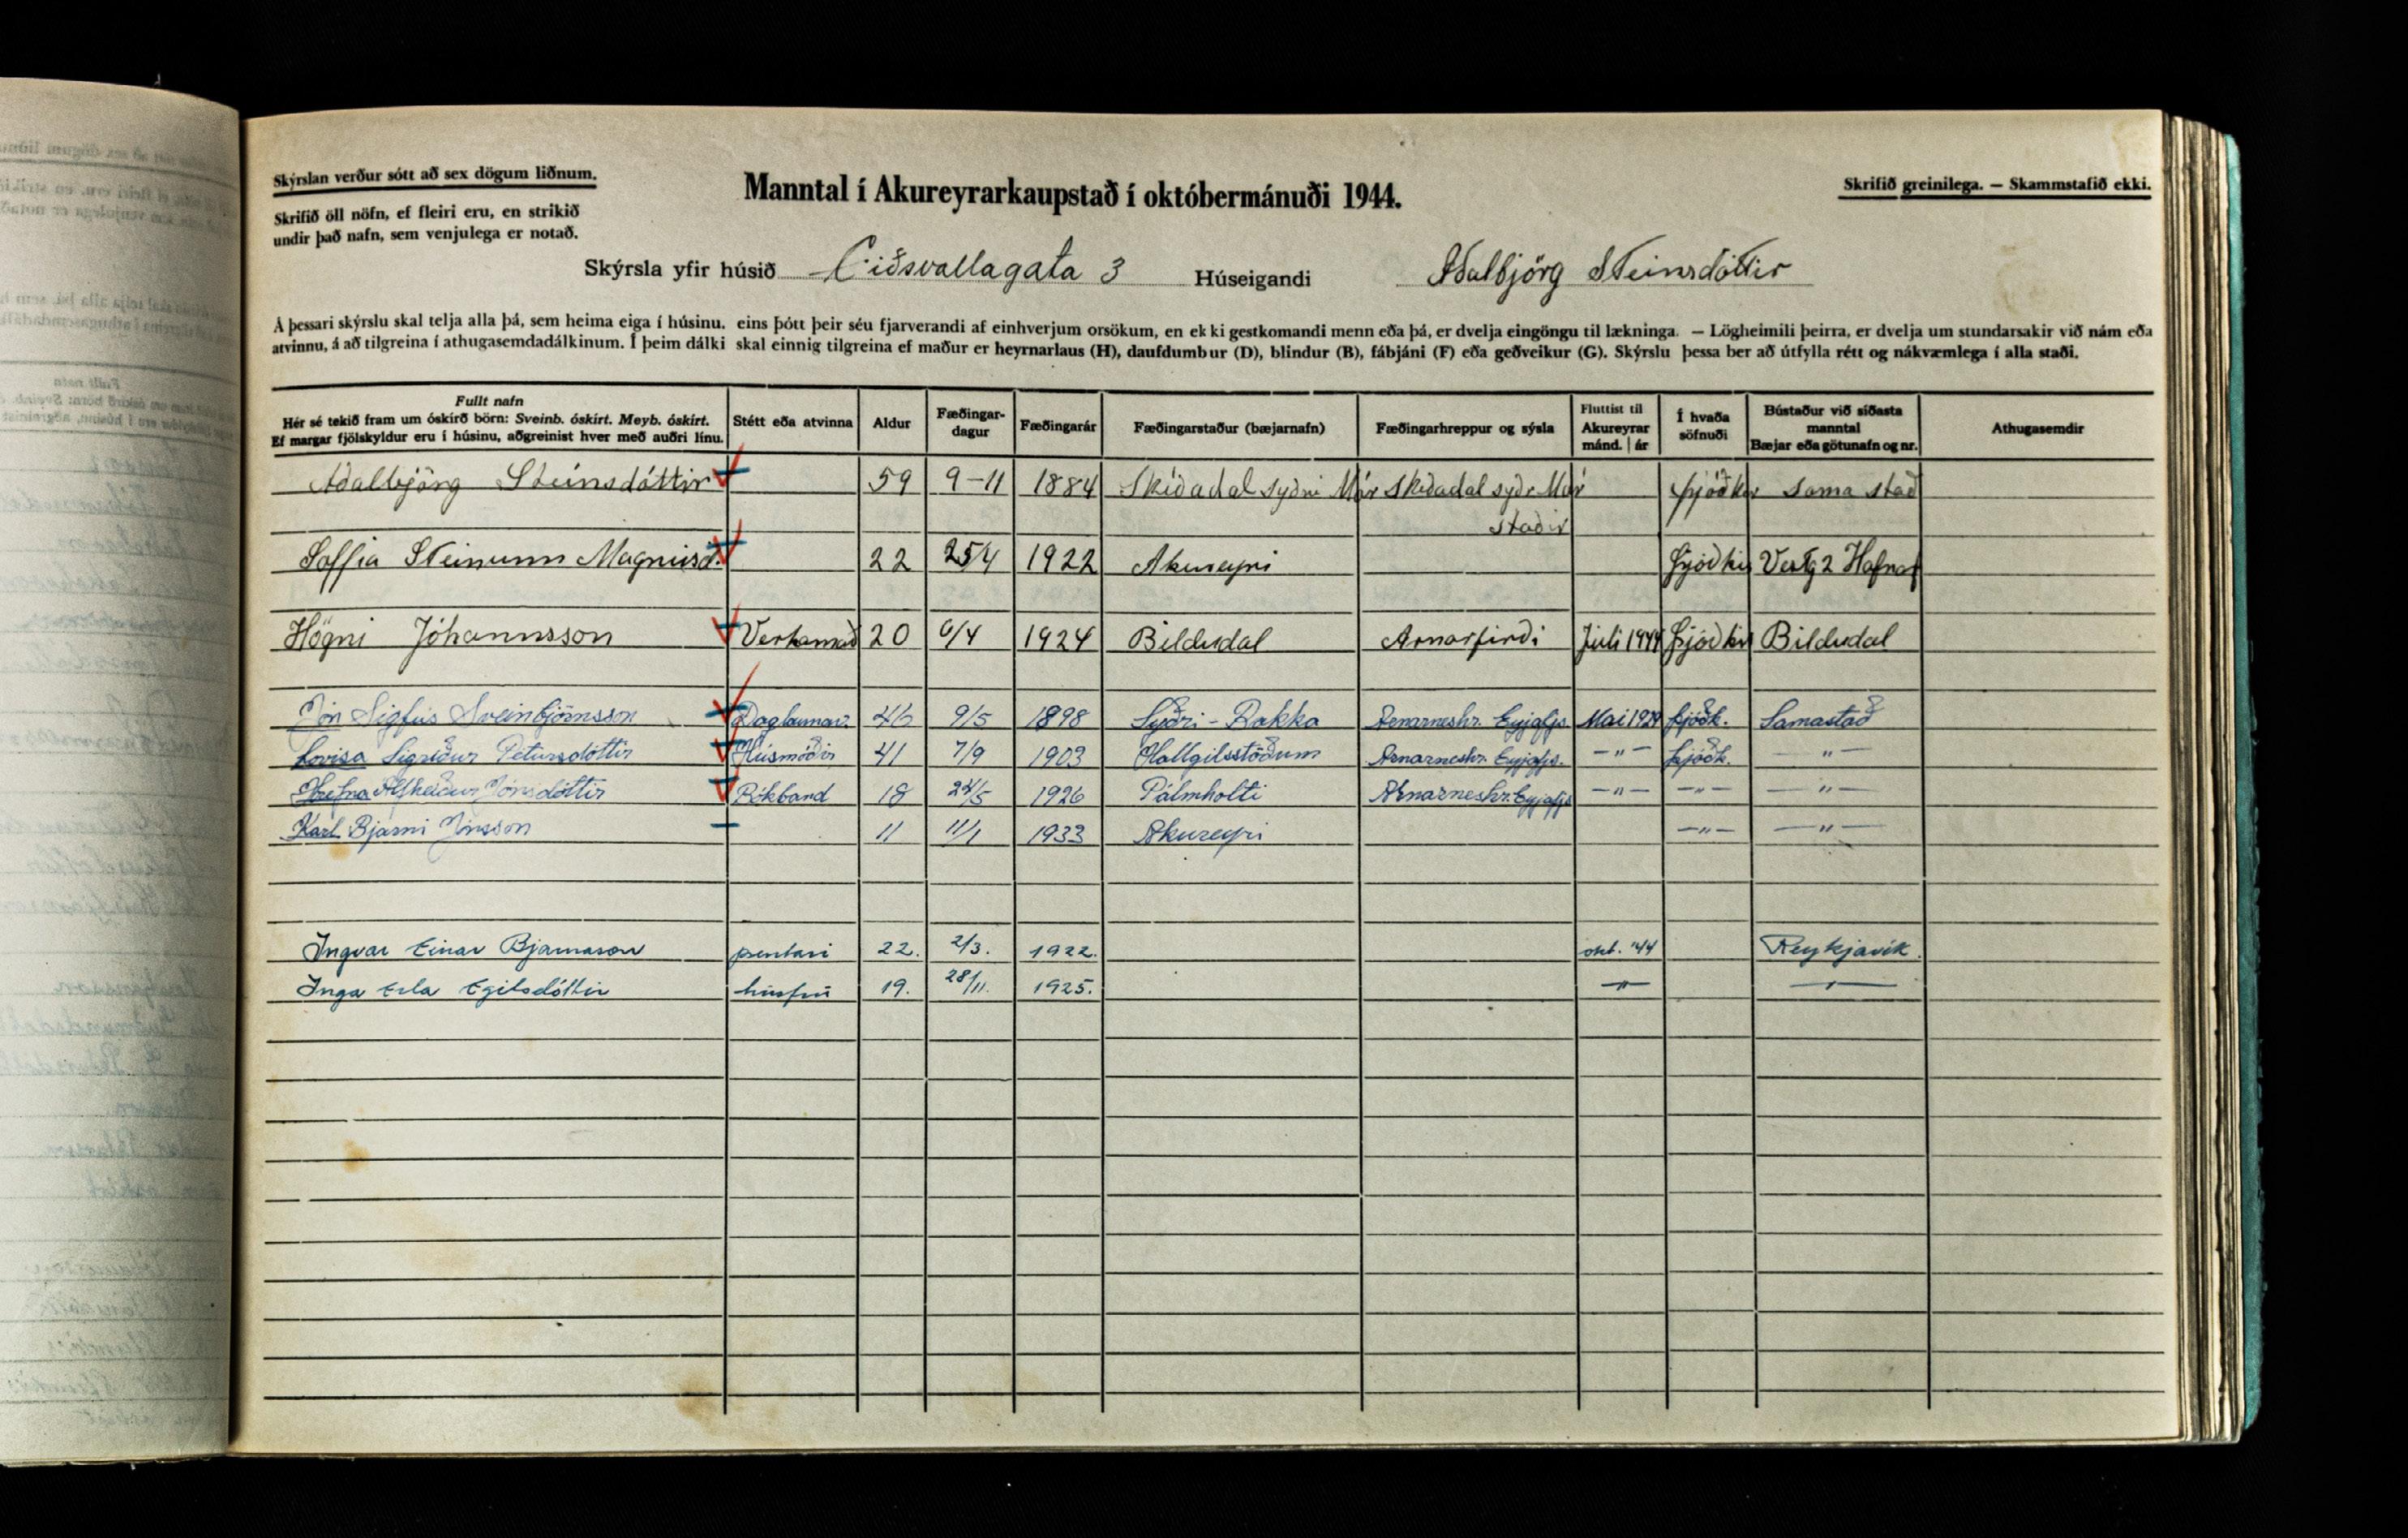 Skýrslan verður sótt að sex dögum liðnum.
Skrifið öll nöfn, ef fleiri eru, en strikið
undir það nafn, sem venjulega er notað.
Manntal í Akureyrarkaupstað í októbermánuði 1944.
Skrifið greinilega. — Skammstafið ekki.
Skýrsla yfir húsið Eiðsvallagata 3 Húseigandi Aðalbjörg Steinsdóttir
Á þessari skýrslu skal telja alla þá, sem heima eiga í húsinu, eins þótt þeir séu fjarverandi af einhverjum orsökum, en ekki gestkomandi menn eða þá, er dvelja eingöngu til lækninga. — Lögheimili þeirra, er dvelja um stundarsakir við nám eða
atvinnu, á að tilgreina í athugasemdadálkinum. Í þeim dálki skal einnig tilgreina ef maður er heyrnarlaus (H), daufdumbur (D), blindur (B), fábjáni (F) eða geðveikur (G). Skýrslu þessa ber að útfylla rétt og nákvæmlega í alla staði.
Fullt nafn
Hér sé tekið fram um óskírð börn: Sveinb. óskírt. Meyb. óskírt.
Ef margar fjölskyldur eru í húsinu, aðgreinist hver með auðri línu.
Stétt eða atvinna
Aldur
Fæðingar-
dagur
Fæðingarár
Fæðingarstaður (bæjarnafn)
Fæðingarhreppur og sýsla
Fluttist til
Akureyrar
mánd. | ár
Í hvaða
söfnuði
Bústaður við síðasta
manntal
Bæjar eða götunafn og nr.
Athugasemdir
Aðalbjörg Steinsdóttir 59 9-11 1884 Skíðadal syðri Már Skíðadal syðr Már þjóðkir sama stað
staðir
Soffia Steinunn Magnúsd. 22 25/4 1922 Akureyri þjóðkir Vestg 2 Hafnaf
Högni Jóhannsson Verkamað 20 6/4 1924 Bíldudal Arnarfirði Júli 1944 þjóðkir Bíldudal
Jón Sigfús Sveinbjörnsson Daglaunam. 46 9/5 1898 Syðri-Bakka Arnarneshr. Eyjafjs. Mai 1929 þjóðk. Samastað
Lovísa Sigríður Pétursdóttir Húsmóðir 41 7/9 1903 Hallgilsstöðum Arnarneshr. Eyjafjs. —"— þjóðk. —"—
Hrefna Álfheiður Jónsdóttir Bókband 18 24/5 1926 Pálmholti Arnarneshr. Eyjafjs —"— —"— —"—
Karl Bjarni Jónsson 11 11/1 1933 Akureyri —"— —"—
Ingvar Einar Bjarnason prentari 22. 2/3. 1922. okt. '44 Reykjavík.
Inga Erla Egilsdóttir húsfrú 19. 28/11. 1925. —"— —"—